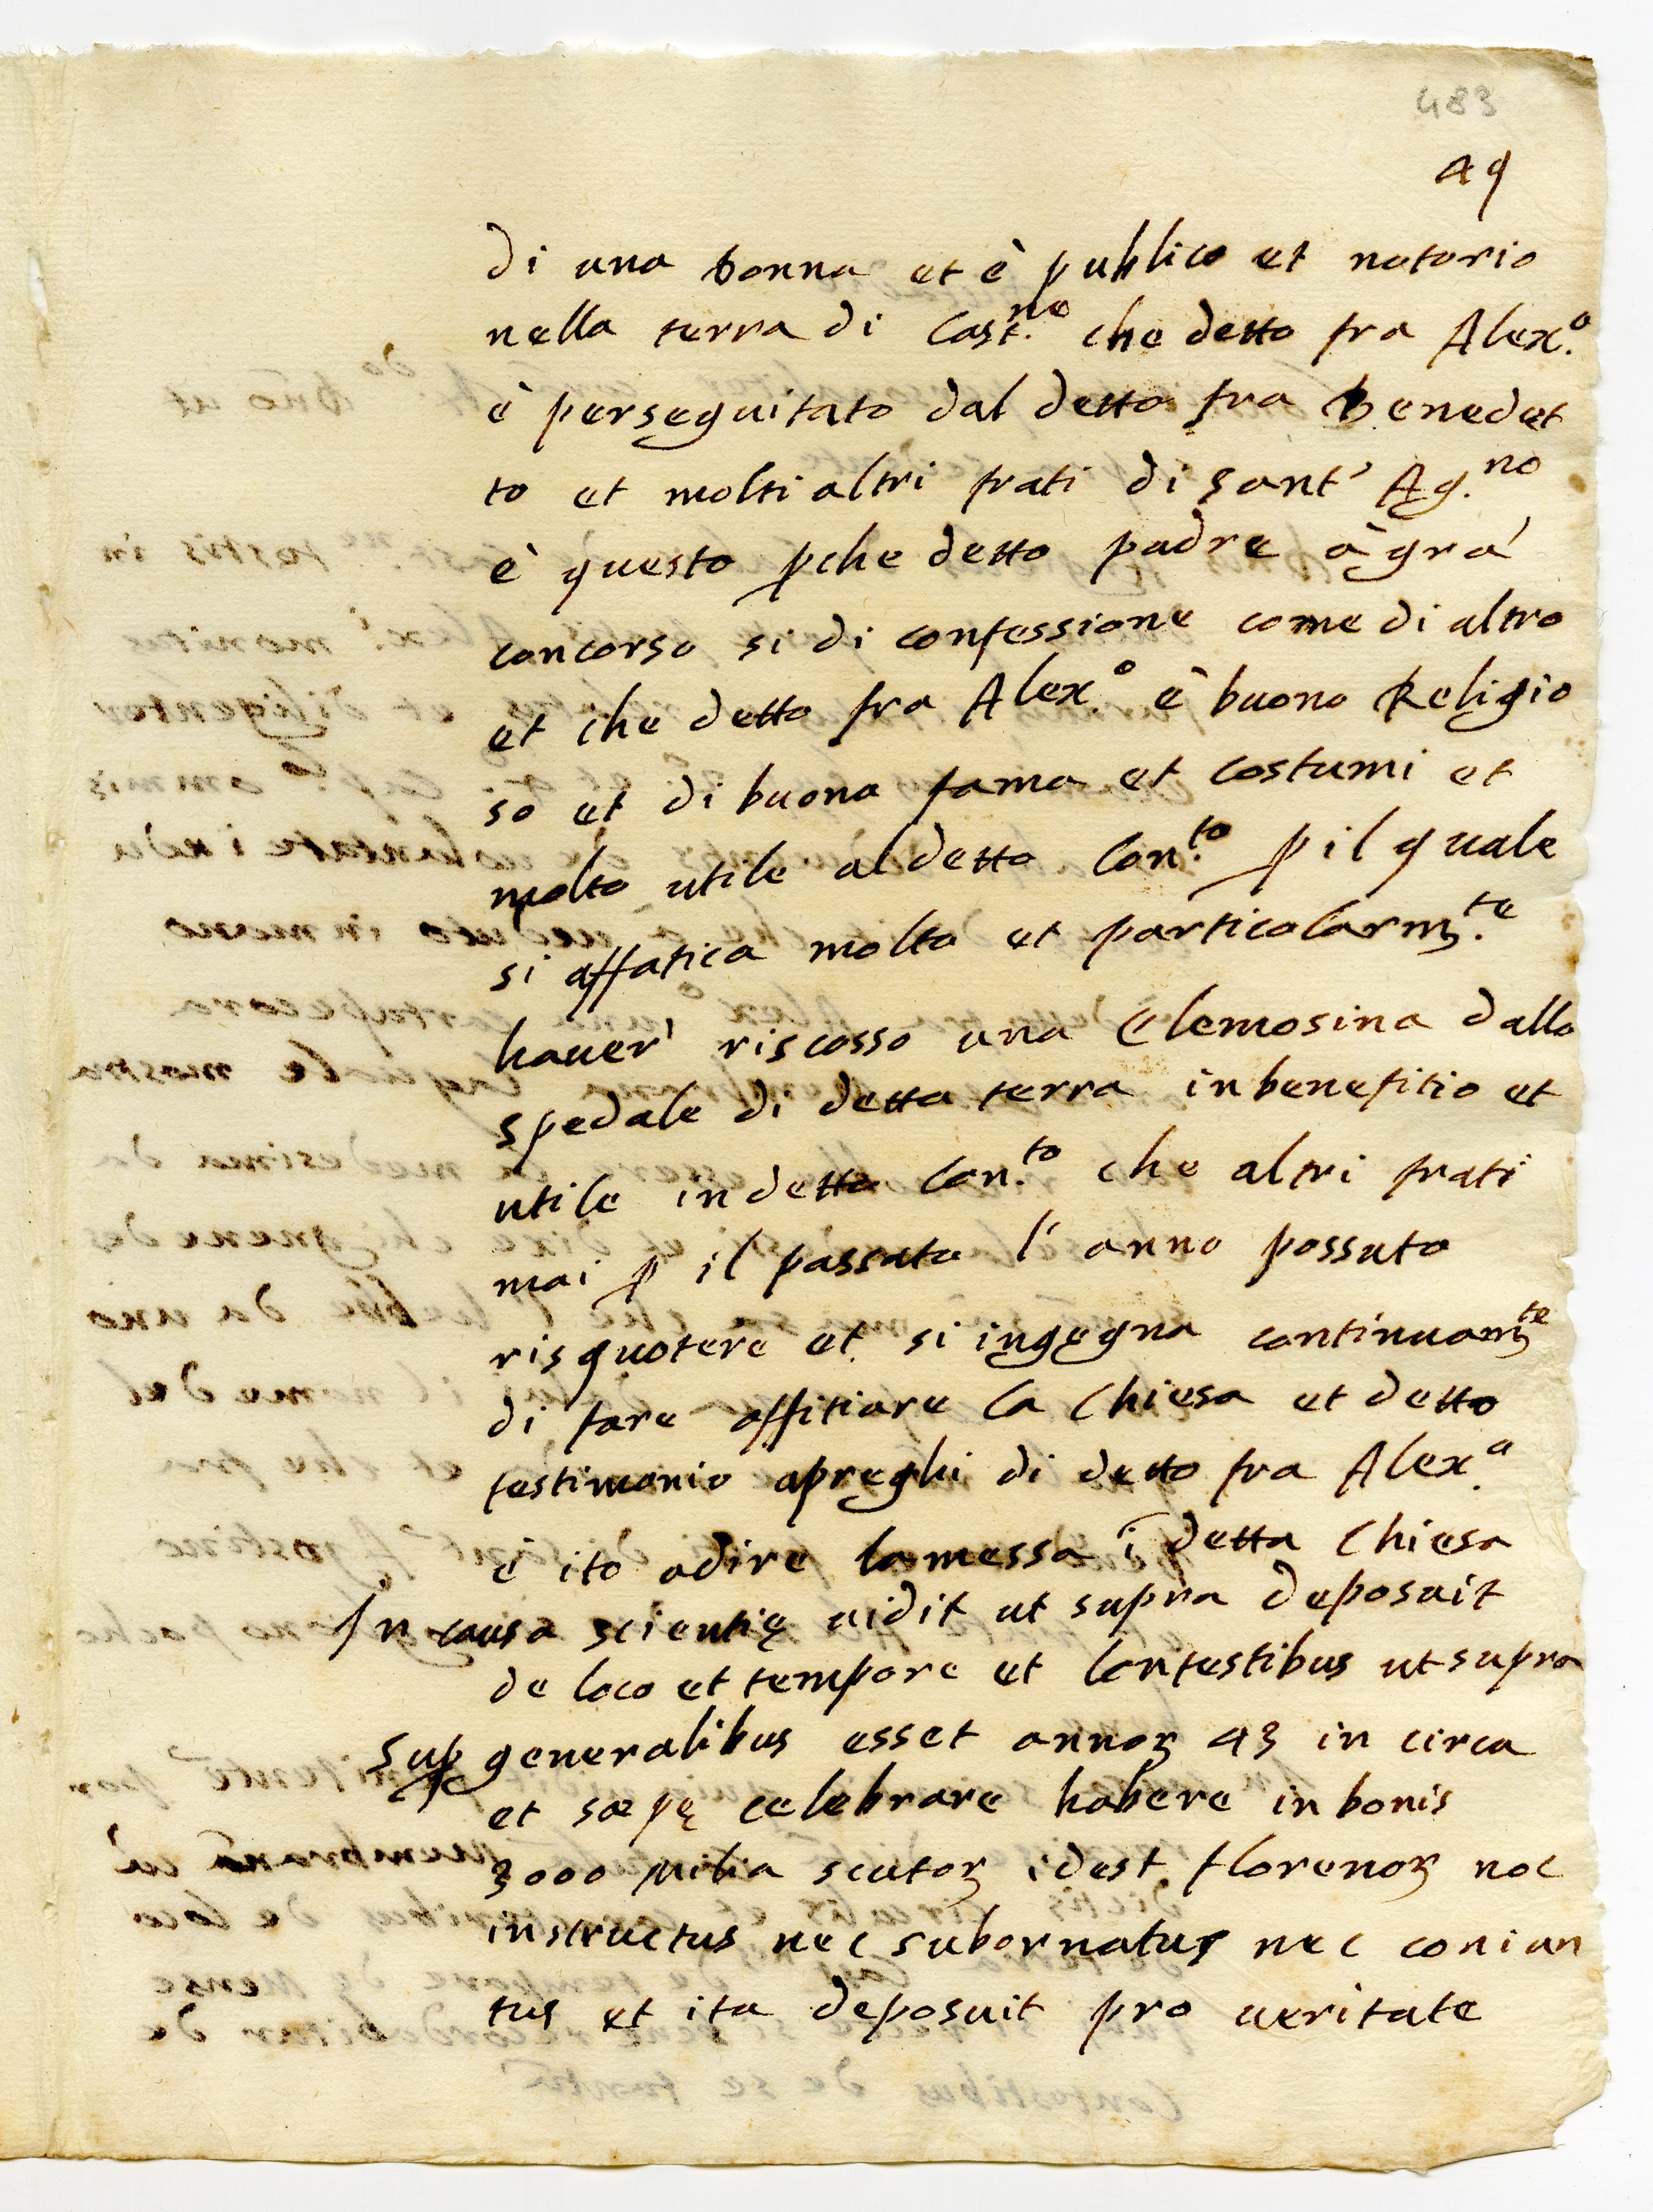 483
49
di una donna et è publico et notorio
nella terra di Cast.ne che detto fra Alex.o
è perseguitato dal detto fra Benedet
to et molti altri frati di sant' Ag.no
è questo pche detto padre à grã
concorso si di confessione come di altro
et che detto fra Alex.o è buono Religio
so et di buona fama et costumi et
molto utile al detto Con.to p il quale
si affatica molto et particolarm.te
hauer' riscosso una Elemosina dallo
spedale di detta terra in benefitio et
utile in detto Con.to che altri frati
mai p il passato l'anno possuto
risquotere et si ingegna continuam.te
di fare offitiare la Chiesa et detto
testimonio apreghi di detto fra Alex.o
è ito odire la messa ĩ detta Chiesa
In causa scientię uidit ut supra deposuit
de loco et tempore et Contestibus ut supra
Sup generalibus esset annoꝝ 43 in circa
et sæpę celebrare habere in bonis
3000 Milia scutoꝝ idest florenoꝝ noc
instructus nec subornatus nec coniun
tus et ita deposuit pro ueritate